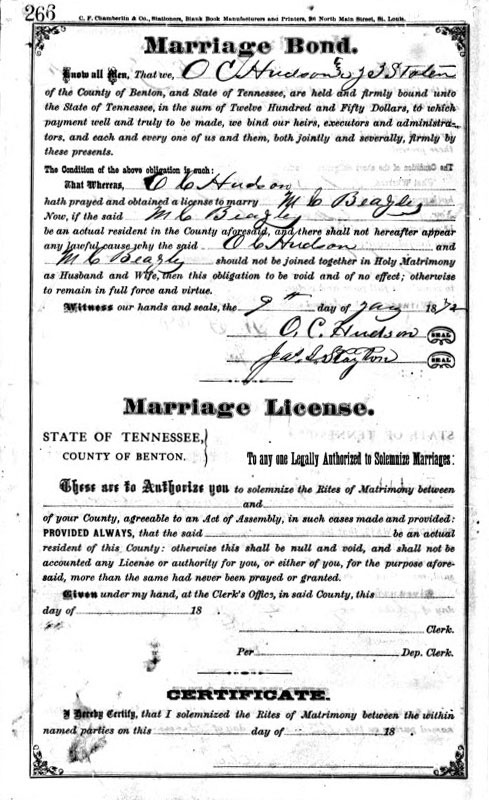 266
C. F. Chamberlin & Co., Stationers, Blank Book Manufacturers and Printers, 26 North Main Street, St. Louis.
Marriage Bond.
Know all Men, That we, O C Hudson & J S
of the County of Benton, and State of Tennessee, are held and firmly bound unto
the State of Tennessee, in the sum of Twelve Hundred and Fifty Dollars, to which
payment well and truly to be made, we bind our heirs, executors and administra-
tors, and each and every one of us and them, both jointly and severally, firmly by
these presents.
The Condition of the above obligation is such:
That Whereas, O C Hudson
hath prayed and obtained a license to marry M C Beazley
Now, if the said M C Beazley
be an actual resident in the County aforesaid, and there shall not hereafter appear
any lawful cause why the said O C Hudson and
M C Beazley should not be joined together in Holy Matrimony
as Husband and Wife, then this obligation to be void and of no effect; otherwise
to remain in full force and virtue.
Witness our hands and seals, the 9th day of Jany 1872
O. C. Hudson SEAL
Jas. S. SEAL
Marriage License.
STATE OF TENNESSEE,
COUNTY OF BENTON.
To any one Legally Authorized to Solemnize Marriages:
These are to Authorize you to solemnize the Rites of Matrimony between
and
of your County, agreeable to an Act of Assembly, in such cases made and provided:
PROVIDED ALWAYS, that the said be an actual
resident of this County: otherwise this shall be null and void, and shall not be
accounted any License or authority for you, or either of you, for the purpose afore-
said, more than the same had never been prayed or granted.
Given under my hand, at the Clerk's Office, in said County, this
day of 18
Clerk.
Per Dep. Clerk.
CERTIFICATE.
I Hereby Certify, that I solemnized the Rites of Matrimony between the within
named parties on this day of 18